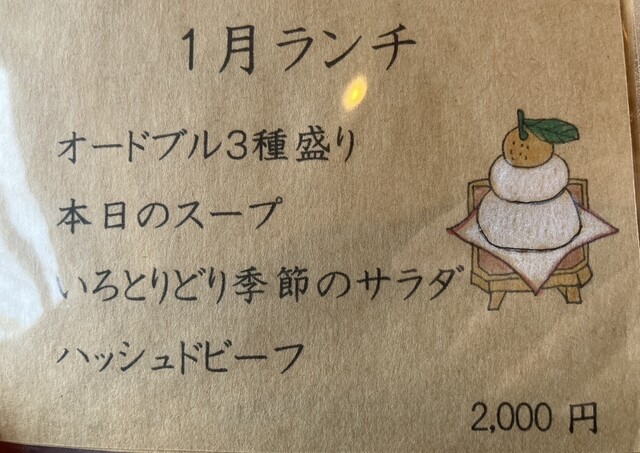 1月ランチ
オードブル3種盛り
本日のスープ
いろとりどり季節のサラダ
ハッシュドビーフ
2,000 円